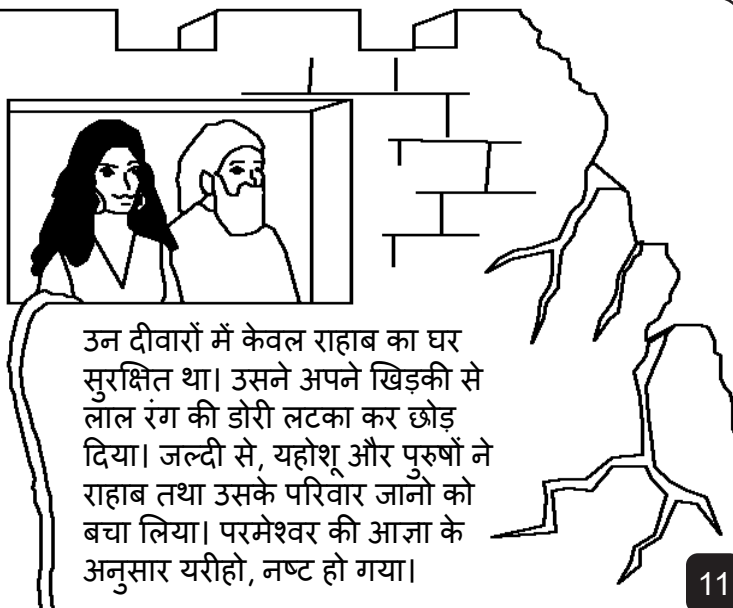 उन दीवारों में केवल राहाब का घर
सुरक्षित था। उसने अपने खिड़की से
लाल रंग की डोरी लटका कर छोड़
दिया। जल्दी से, यहोशू और पुरुषों ने
राहाब तथा उसके परिवार जानो को
बचा लिया। परमेश्वर की आज्ञा के
अनुसार यरीहो, नष्ट हो गया।
11